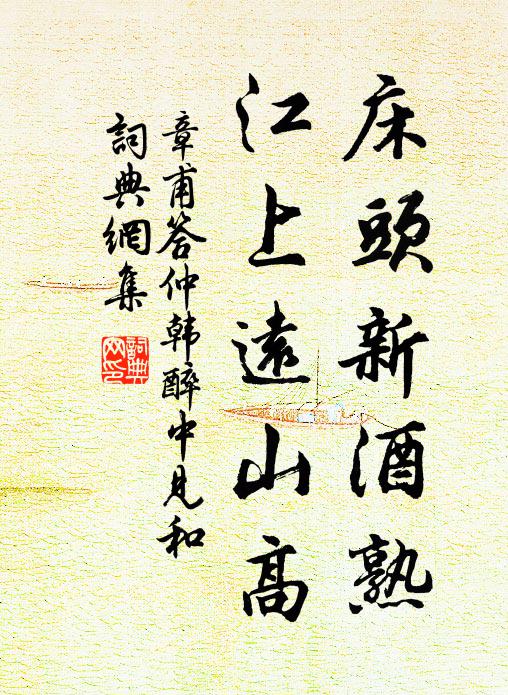 床頭新酒熟
江上遠山高
章甫答仲韩醉中見和
詞典網集
詞典
网印